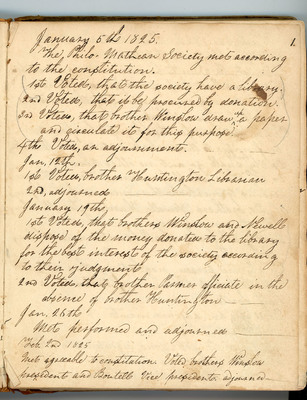 1.
January 5th 1825.
The Philo. Mathean Society met according
to the constitution.
1st Voted, that the society have a library.
2nd Voted, that it be procured by donation.
3rd Voted, that brother Winslow draw up a paper
and circulate it for this purpose.
4th Voted, an adjournment.
Jan, 12th.
1st Voted, brother Huntington Librarian
2nd, adjourned
January 19th,
1st Voted, that brothers Winslow and Newell
dispose of the money donated to the library
for the best interest of the society according
to their judgment
2nd Voted, that brother Farmer officiate in the
absence of brother Huntington
Jan. 26th
Met, performed and adjourned
Feb. 2nd 1825
Met agreeable to constitution Voted brothers Winslow
president and Bartlett Vice president adjourned